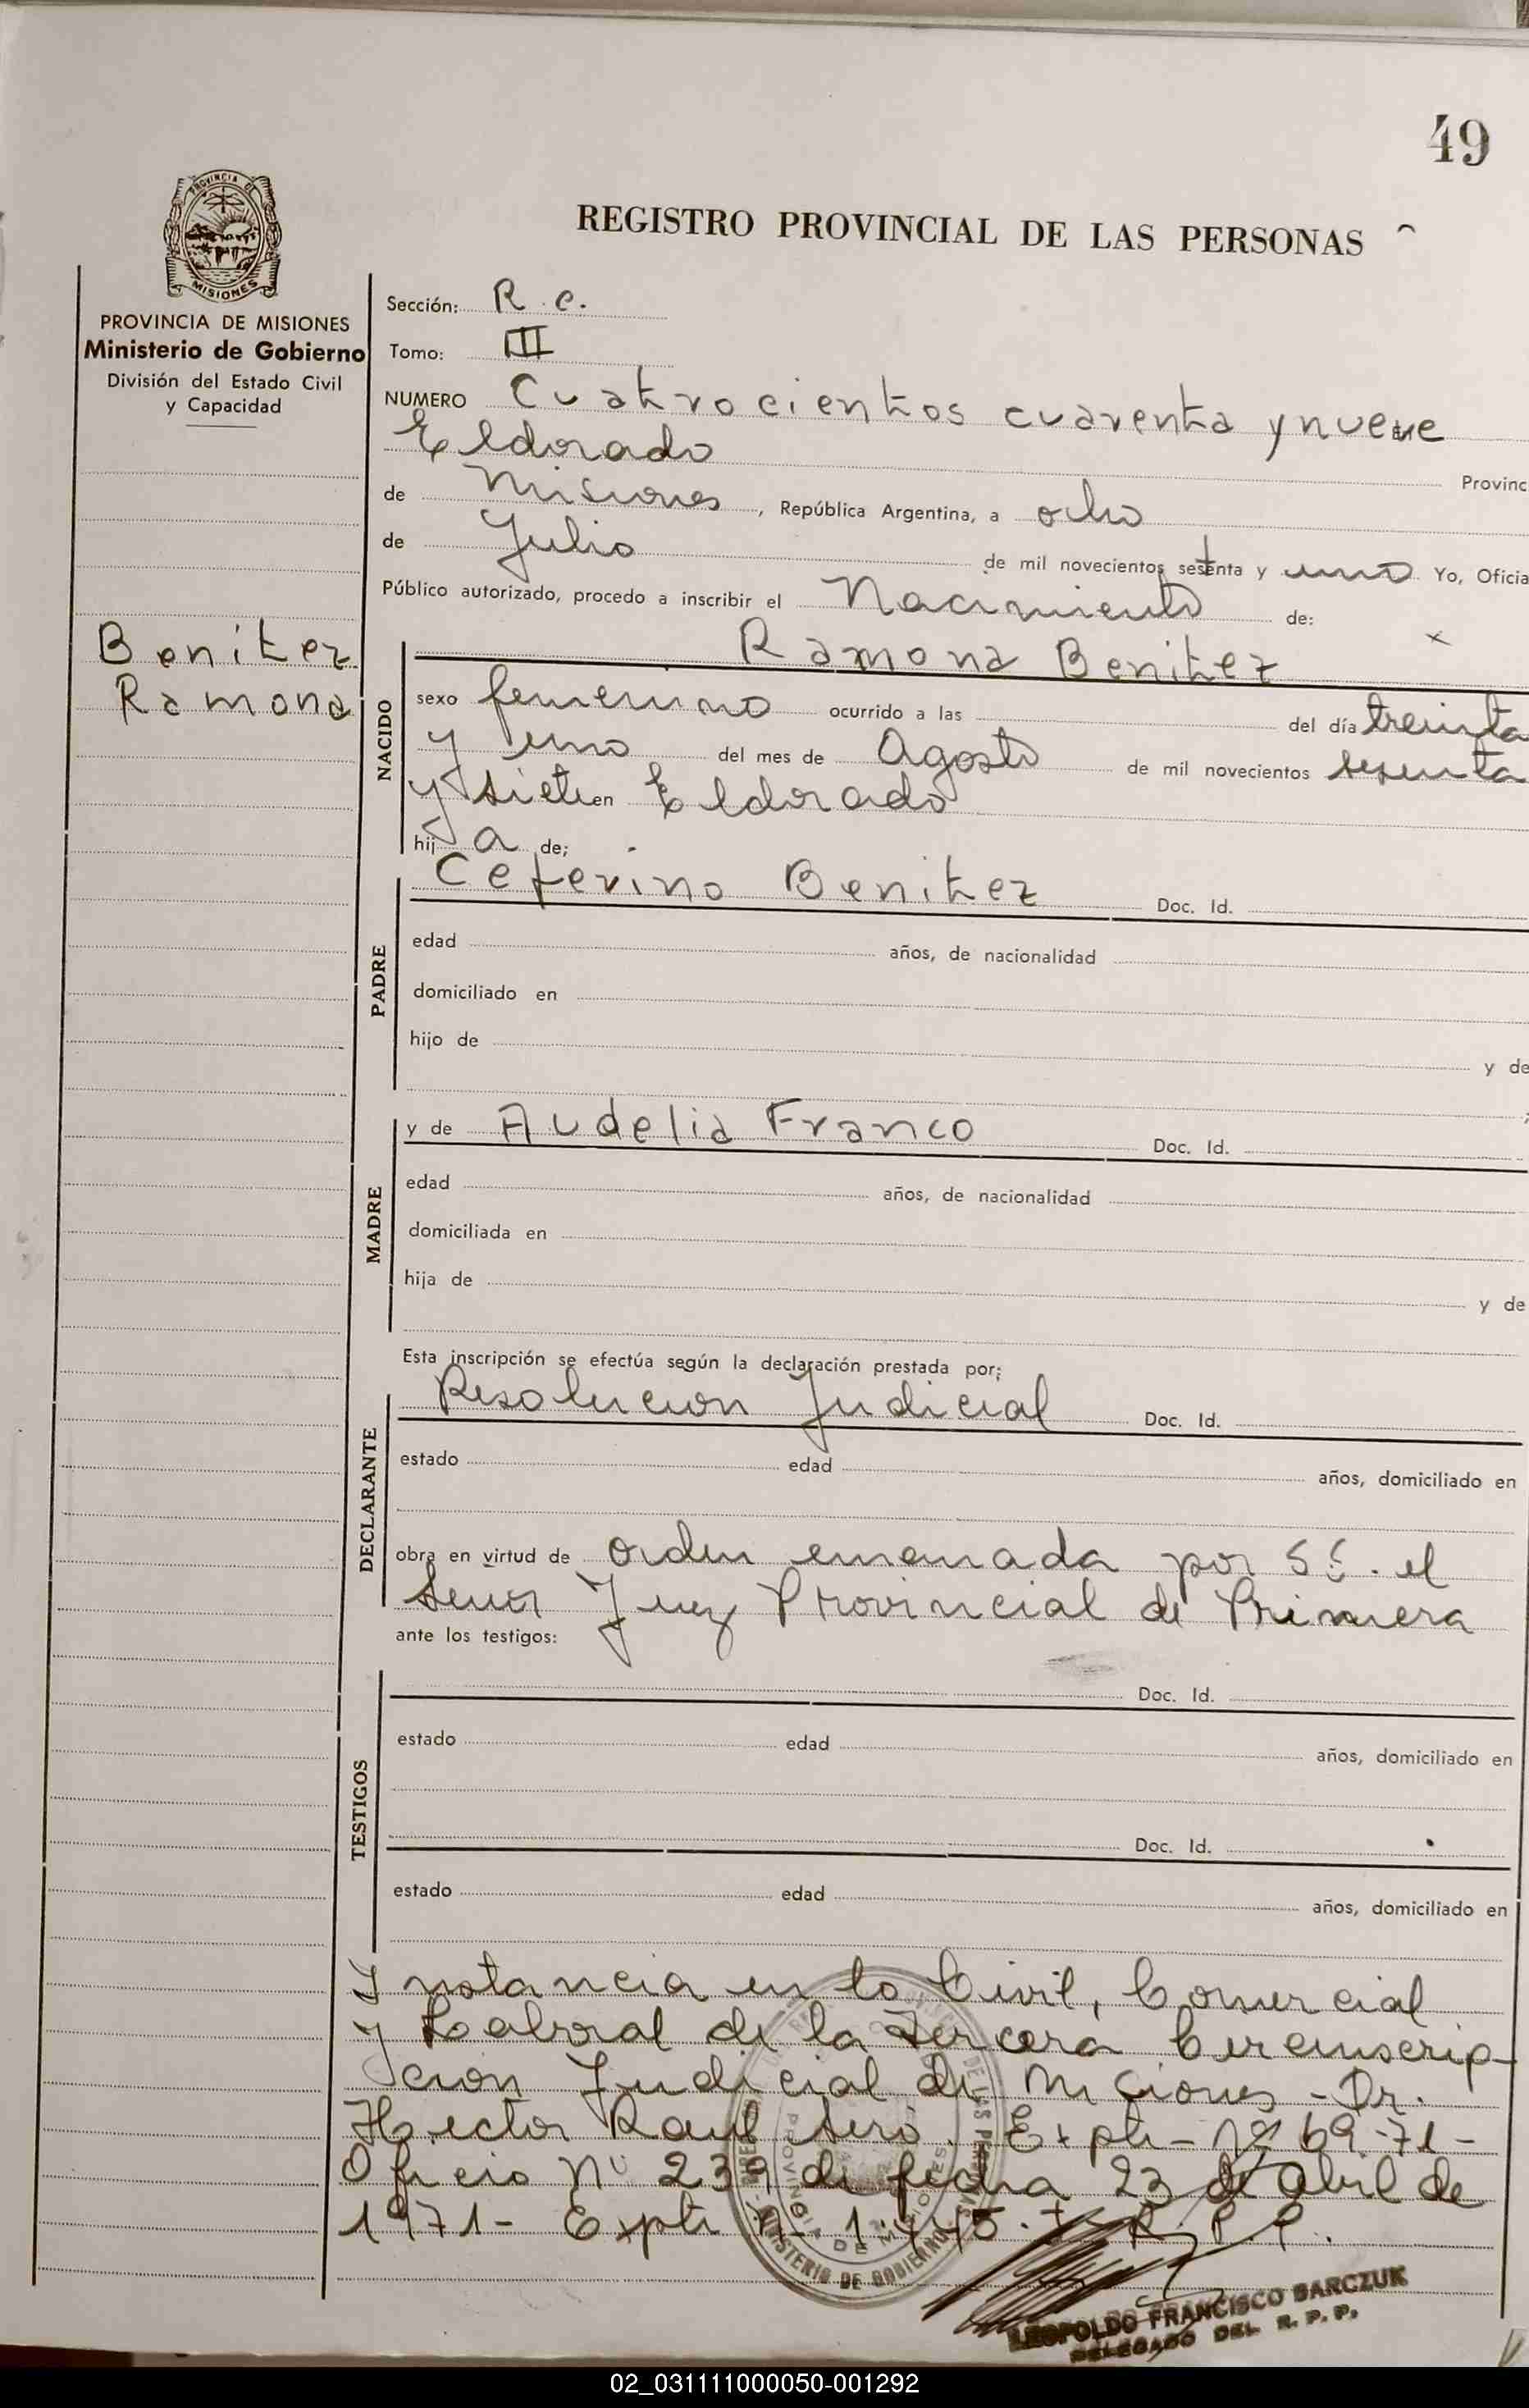 49
REGISTRO PROVINCIAL DE LAS PERSONAS
PROVINCIA DE
MISIONES
PROVINCIA DE MISIONES
Ministerio de Gobierno
División del Estado Civil
y Capacidad
Benitez
Ramona
Sección: R.c.
Tomo: III
NUMERO Cuatrocientos cuarenta y nueve
Eldorado Provinc
de Misiones, República Argentina, a ocho
de Julio de mil novecientos setenta y uno Yo, Oficia
Público autorizado, procedo a inscribir el Nacimiento de:
Ramona Benitez
NACIDO
sexo femenino ocurrido a las del día treinta
y uno del mes de Agosto de mil novecientos sesenta
y siete en Eldorado
hij a de;
Ceferino Benitez Doc. Id.
PADRE
edad años, de nacionalidad
domiciliado en
hijo de y de
y de Audelia Franco Doc. Id.
MADRE
edad años, de nacionalidad
domiciliada en
hija de y de
Esta inscripción se efectúa según la declaración prestada por;
Resolucion Judicial Doc. Id.
DECLARANTE
estado edad años, domiciliado en
obra en virtud de orden emanada por S.S. el
Señor Juez Provincial de Primera
ante los testigos:
Doc. Id.
TESTIGOS
estado edad años, domiciliado en
Doc. Id.
estado edad años, domiciliado en
Instancia en lo Civil, Comercial
y Laboral de la Tercera Circunscrip-
cion Judicial de Misiones - Dr.
Hector Raul Seró. Expte - Nº 69-71-
Oficio Nº 239 de fecha 23 de Abril de
1971- Expte Nº R.P.P.
PROVINCIA DE MISIONES
MINISTERIO DE GOBIERNO
LEOPOLDO FRANCISCO BARCZUK
DELEGADO DEL R.P.P.
02_031111000050-001292